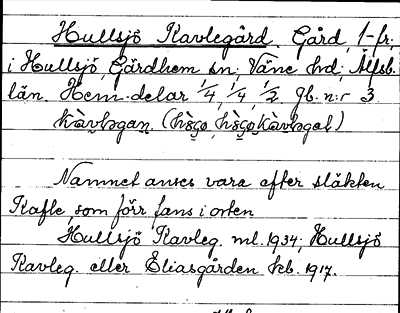 Hullsjö Kavlegård, Gård, 1-fr.
i Hullsjö, Gärdhem sn. Väne hd, Älfsb.
län. Hem.-delar 1/4, 1/4, 1/2. Jb. n:r 3.
Namnet anses vara efter släkten
Kafle som förr fans i orten
Hullsjö Kavleg. ml. 1934; Hullsjö
Kavleg. eller Eliasgården kb. 1917.